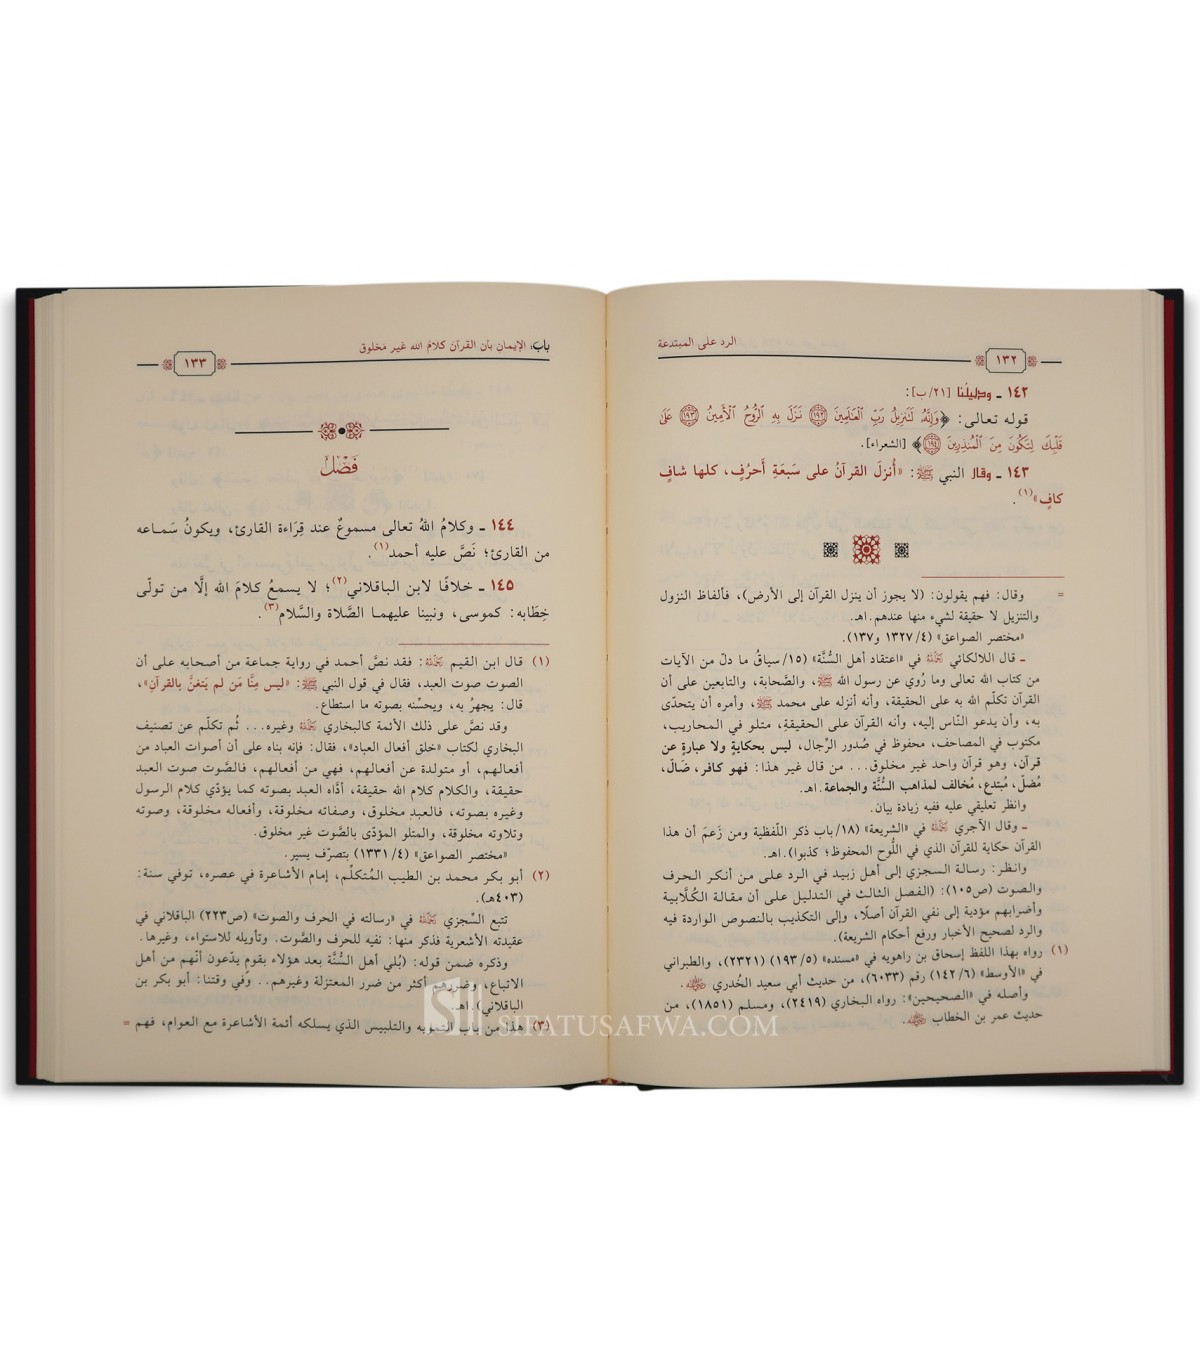 الرد على المبتدعة
١٣٢
١٤٢ ـ ودليلُنا [٢١/ب]:
قوله تعالى: ﴿وَإِنَّهُ لَتَنزِيلُ رَبِّ الْعَالَمِينَ ١٩٢ نَزَلَ بِهِ الرُّوحُ الْأَمِينُ ١٩٣ عَلَىٰ
قَلْبِكَ لِتَكُونَ مِنَ الْمُنذِرِينَ ١٩٤﴾ [الشعراء].
١٤٣ ـ وقال النبي ﷺ: «أُنزلَ القرآنُ على سَبعَةِ أَحرُفٍ، كلها شافٍ
كافٍ»(١).
= وقال: فهم يقولون: (لا يجوز أن ينزل القرآن إلى الأرض)، فألفاظ النزول
والتنزيل لا حقيقة لشيء منها عندهم.اهـ.
«مختصر الصواعق» (٤/ ١٣٢٧ و١٣٧).
ـ قال اللالكائي رحمه الله في «اعتقاد أهل السُّنَّة» (١٥/سياقُ ما دلّ من الآيات
من كتاب الله تعالى وما رُوي عن رسول الله ﷺ، والصَّحابة، والتابعين على أن
القرآن تكلّم الله به على الحقيقة، وأنه أنزله على محمد ﷺ، وأمره أن يتحدّى
به، وأن يدعو النّاس إليه، وأنه القرآن على الحقيقةِ، متلو في المحاريب،
مكتوب في المصاحف، محفوظ في صُدور الرِّجال، ليس بحكايةٍ ولا عبارةٍ عن
قرآن، وهو قرآن واحد غير مخلوق... من قال غير هذا: فهو كافر، ضَالّ،
مُضلّ، مُبتدع، مُخالف لمذاهب السُّنَّة والجماعة.اهـ.
وانظر تعليقي عليه ففيه زيادة بيان.
ـ وقال الآجري رحمه الله في «الشريعة» (١٨/باب ذكر اللّفظية ومن زَعمَ أن هذا
القرآن حكاية للقرآن الذي في اللُّوح المحفوظ؛ كذبوا).اهـ.
وانظر: رسالة السجزي إلى أهل زبيد في الرد على من أنكر الحرف
والصوت (ص١٠٥): (الفصل الثالث في التدليل على أن مقالة الكُلَّابية
وأضرابهم مؤدية إلى نفي القرآن أصلًا، وإلى التكذيب بالنصوص الواردة فيه
والرد لصحيح الأخبار ورفع أحكام الشريعة).
(١) رواه بهذا اللفظ إسحاق بن راهويه في «مسنده» (٥/ ١٩٣) (٢٣٢١)، والطبراني
في «الأوسط» (٦/ ١٤٢) رقم (٦٠٣٣)، من حديث أبي سعيد الخُدري رضي الله عنه.
وأصله في «الصحيحين»: رواه البخاري (٢٤١٩)، ومسلم (١٨٥١)، من
حديث عمر بن الخطاب رضي الله عنه.
باب: الإيمان بأن القرآن كلامُ الله غير مخلوق
١٣٣
فَصْلٌ
١٤٤ ـ وكلامُ اللهُ تعالى مسموعٌ عند قِرَاءة القارئ، ويكونُ سَماعه
من القارئ؛ نَصَّ عليه أحمد(١).
١٤٥ ـ خلافًا لابن الباقلاني(٢)؛ لا يسمعُ كلامَ الله إلَّا من تولّى
خِطَابه: كموسى، ونبينا عليهما الصَّلاة والسَّلام(٣).
(١) قال ابن القيم رحمه الله: فقد نصَّ أحمد في رواية جماعة من أصحابه على أن
الصوت صوت العبد، فقال في قول النبي ﷺ: «ليس مِنَّا مَن لم يَتغنَّ بالقرآنِ»،
قال: يجهرُ به، ويحسّنه بصوته ما استطاع.
وقد نصَّ على ذلك الأئمة كالبخاري رحمه الله وغيره... ثُم تكلّم عن تصنيف
البخاري لكتاب «خلق أفعال العباد»، فقال: فإنه بناه على أن أصوات العباد من
أفعالهم، أو متولدة عن أفعالهم، فهي من أفعالهم، فالصَّوت صوت العبد
حقيقة، والكلام كلام الله حقيقة، أدَّاه العبد بصوته كما يؤدّي كلام الرسول
وغيره بصوته، فالعبد مخلوق، وصفاته مخلوقة، وأفعاله مخلوقة، وصوته
وتلاوته مخلوقة، والمتلو المؤدّى بالصَّوت غير مخلوق.
«مختصر الصواعق» (٤/ ١٣٣١) بتصرّف يسير.
(٢) أبو بكر محمد بن الطيب المُتكلِّم، إمام الأشاعرة في عصره، توفي سنة:
(٤٠٣هـ).
تتبع السِّجزي رحمه الله في «رسالته في الحرف والصوت» (ص٢٢٣) الباقلاني في
عقيدته الأشعرية فذكر منها: نفيه للحرف والصَّوت. وتأويله للاستواء، وغيرها.
وذكره ضمن قوله: (بُلي أهل السُّنَّة بعد هؤلاء بقومٍ يدّعون أنّهم من أهل
الاتباع، وضررهم أكثر من ضرر المعتزلة وغيرهم.. وفي وقتنا: أبو بكر بن
الباقلاني).اهـ.
(٣) هذا من باب التمويه والتلبيس الذي يسلكه أئمة الأشاعرة مع العوام، فهم =
SIFATUSAFWA.COM